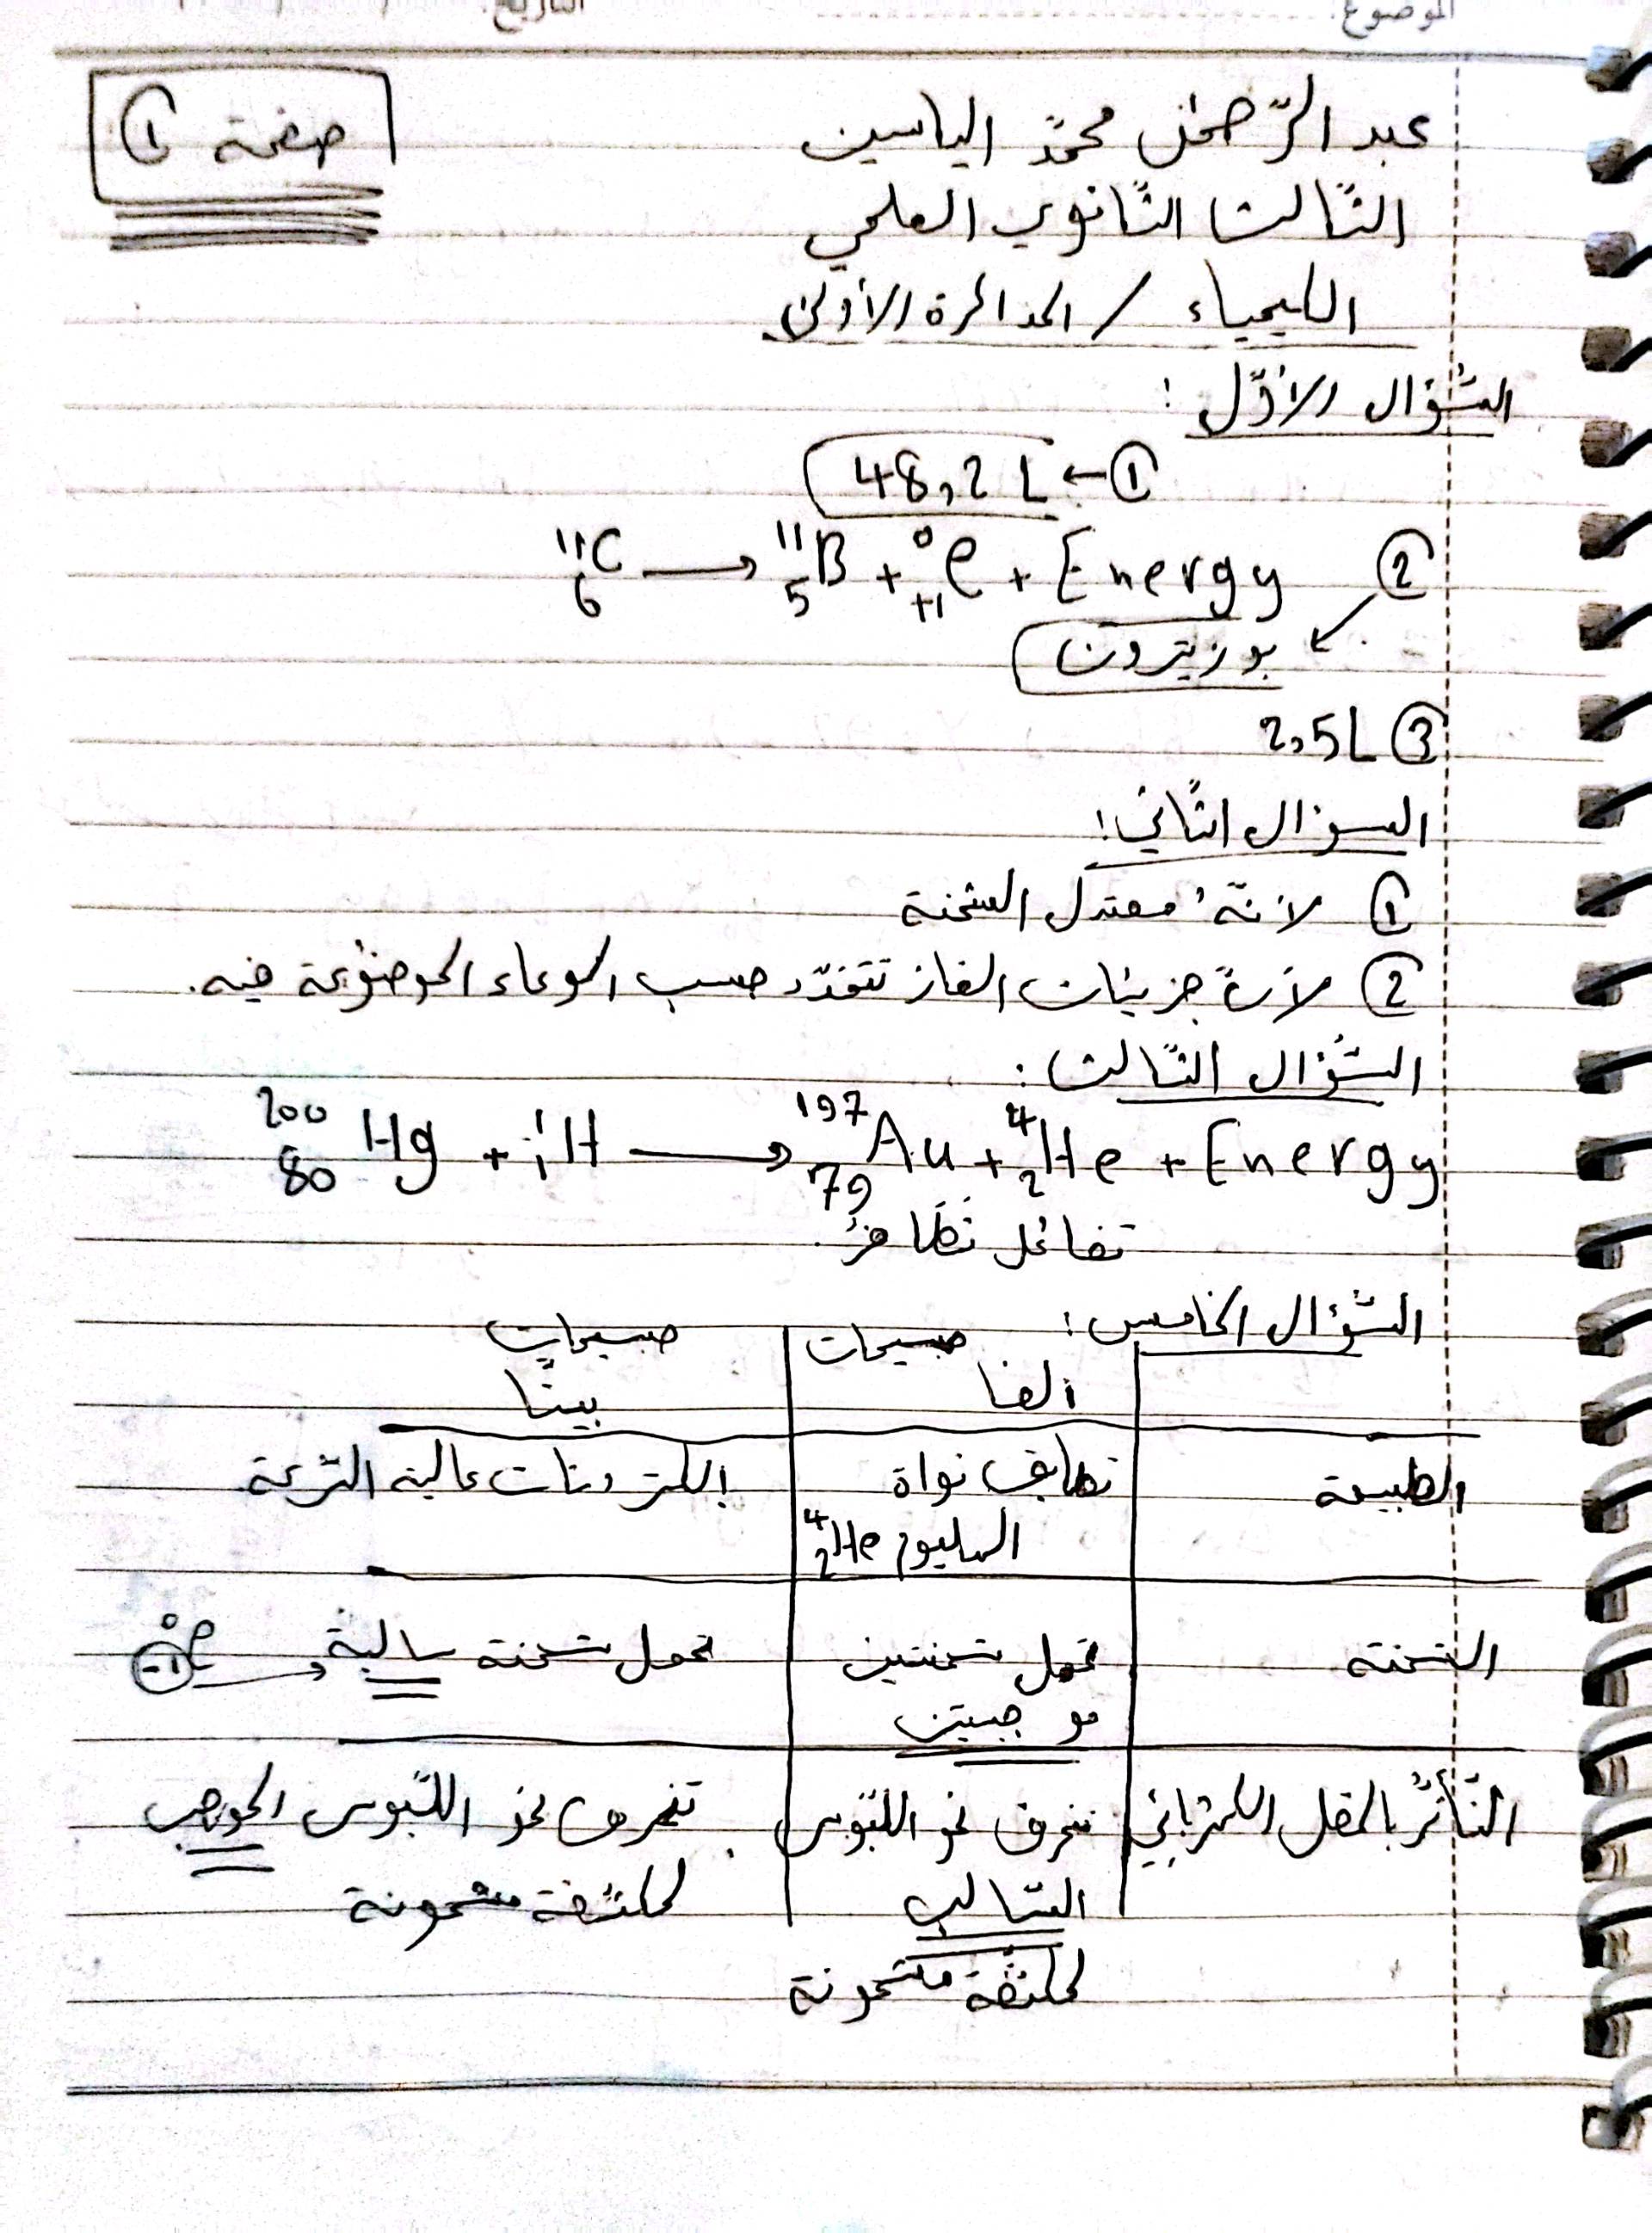 الموضوع:
التاريخ:
صفحة ①
عبد الرّحمن محمّد الياسين
الثّالث الثّانوي العلمي
الكيمياء / المذاكرة الأولى
السّؤال الأوّل:
① ← 48,2 L
② ¹¹₆C → ¹¹₅B + ⁰₊₁e + Energy
بوزيترون
③ 2,5L
السؤال الثّاني:
① لأنّه معتدل الشحنة
② لأنّ جزيئات الغاز تتمدّد حسب الوعاء الموضوعة فيه.
السّؤال الثّالث:
²⁰⁰₈₀Hg + ¹₁H → ¹⁹⁷₇₉Au + ⁴₂He + Energy
تفاعل تطافر.
السّؤال الخامس:
جسيمات ألفا
جسيمات بيتّا
الطبيعة
تطابق نواة
الهليوم ⁴₂He
إلكترونات عالية السّرعة
الشحنة
تحمل شحنتين
موجبتين
تحمل شحنة سالبة ⁰₋₁e
التّأثّر بالحقل الكهربائي
تنحرف نحو اللّبوس
السّالب
لمكثّفة مشحونة
تنحرف نحو اللّبوس الموجب
لمكثّفة مشحونة